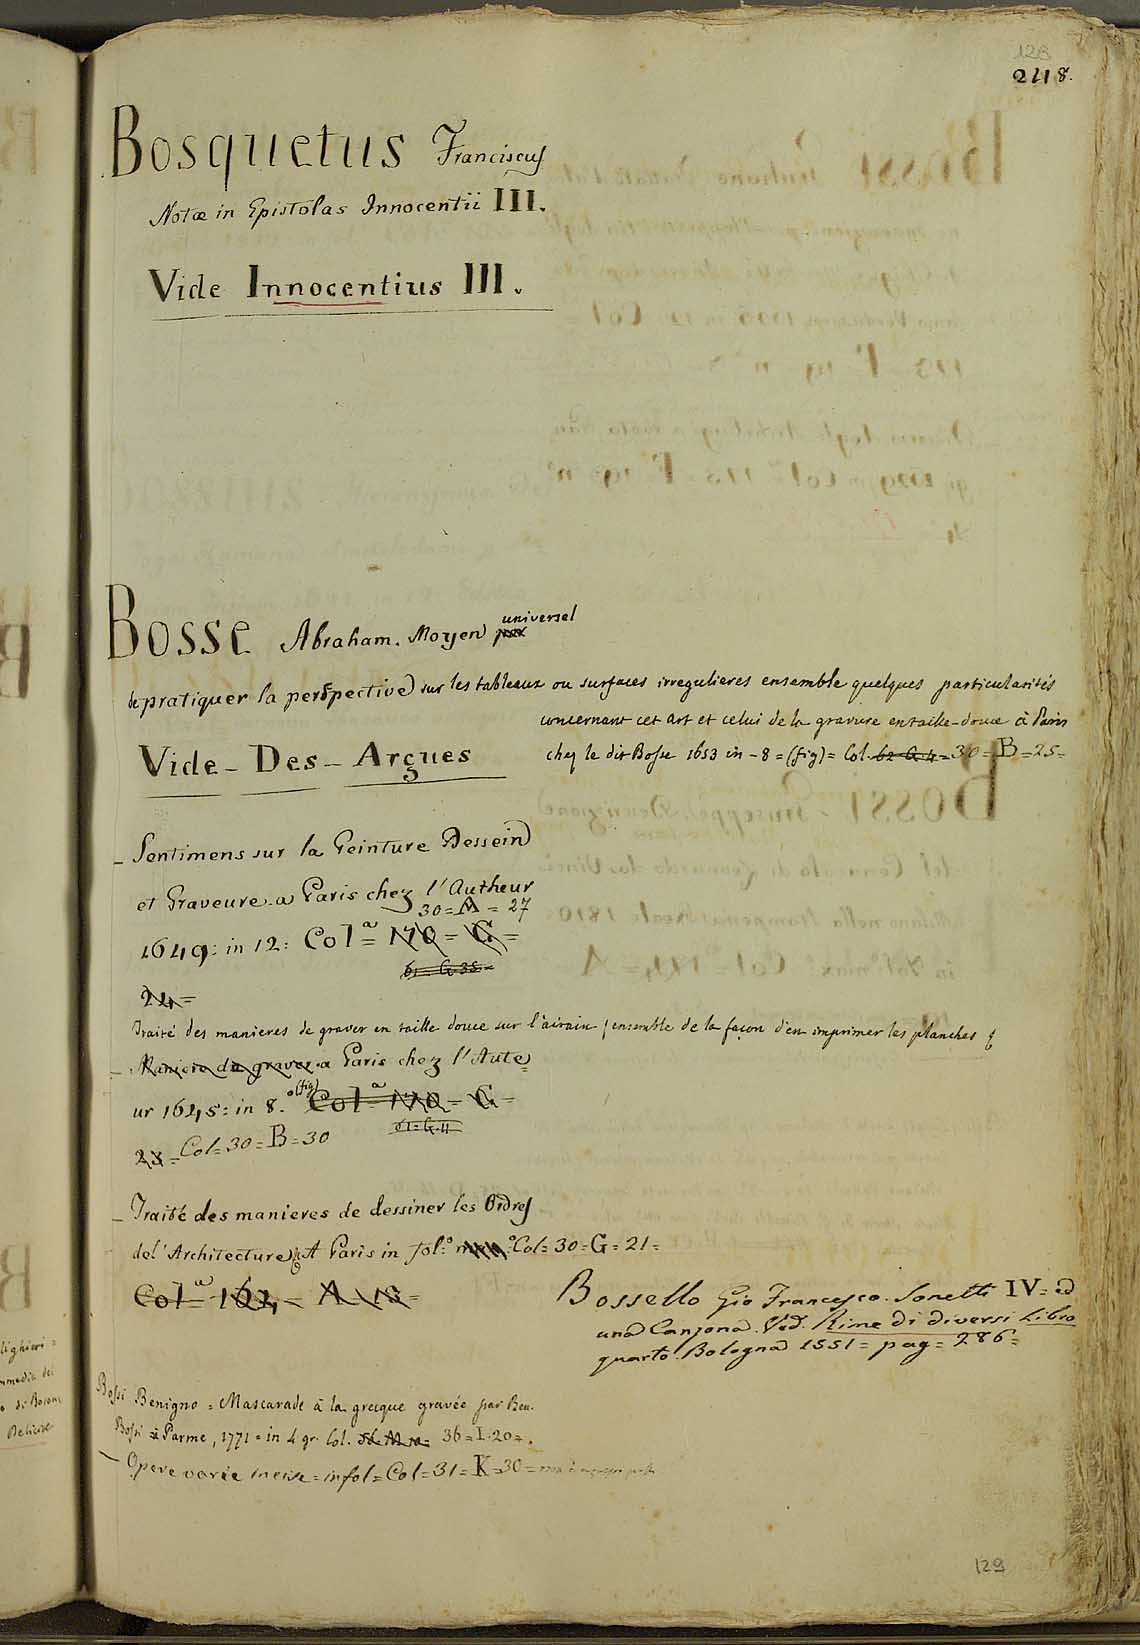 128
248.
Bosquetus Franciscus
Notæ in Epistolas Innocentii III.
Vide Innocentius III.
Bosse Abraham. Moyen universel
de pratiquer la perspective sur les tableaux ou surfaces irregulieres ensemble quelques particularités
concernant cet art et celui de la gravure en taille-douce à Paris
chez le dit Bosse 1653 in-8=(fig)= Col. 62 G 4= 30=B=25=
Vide-Des-Argues
- Sentimens sur la Peinture Dessein
et Graveure. a Paris chez l'Autheur
30=A=27
1649: in 12: Colª= 170= G=
61=G.35=
24=
Traité des manieres de graver en taille douce sur l'airain ensemble de la façon d'en imprimer les planches
- Maniere de graver. a Paris chez l'Aute=
ur 1645: in 8.º (fig) Colª= 170= G=
61=G.4
23= Col=30=B=30
- Traité des manieres de dessiner les Ordres
del'Architecture A Paris in fol:º Col=30=G=21=
Colª 162= A 13=
Bossello Gio Francesco. Sonetti IV= ed
una Canzona. Ved. Rime di diversi Libro
quarto. Bologna 1551= pag= 286=
Bossi Benigno = Mascarade à la grecque gravée par Ben.
Bossi à Parme, 1771= in 4 gr. Col. 36=I.20=.
- Opere varie incise= in fol= Col=31=K=30=
lighieri=
mmedia del
Delizie
129